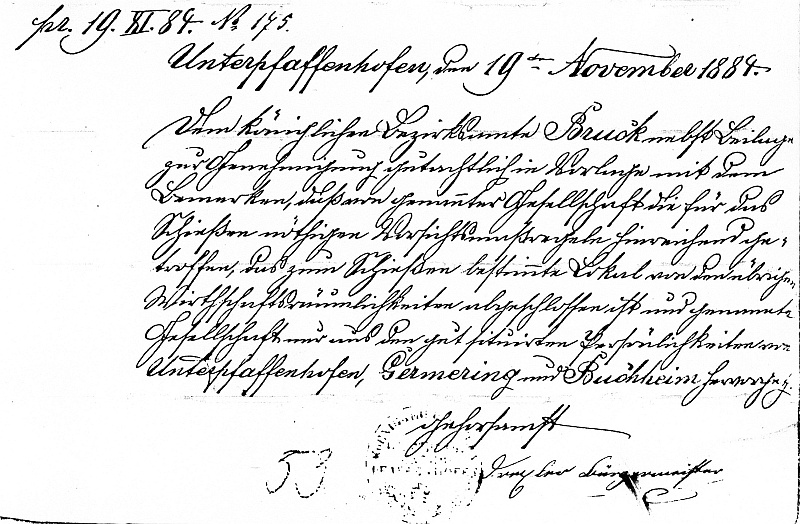 pr. 19. XI. 84. No 175.
Unterpfaffenhofen, den 19ten November 1884.
Dem königlichen Bezirksamte Bruck nebst Beilage
zur Genehmigung gutachtlich in Vorlage mit dem
Bemerken, daß von genannter Gesellschaft die für das
Schießen nöthigen Vorsichtsmaßregeln hinreichend ge-
troffen, das zum Schießen bestimte Lokal von den übrigen
Wirthschaftsräumlichkeiten abgeschlossen ist und genannte
Gesellschaft nur aus den gut situirten Persönlichkeiten von
Unterpfaffenhofen, Germering und Buchheim hervorgeht.
gehorsamst
Drexler Bürgermeister
53